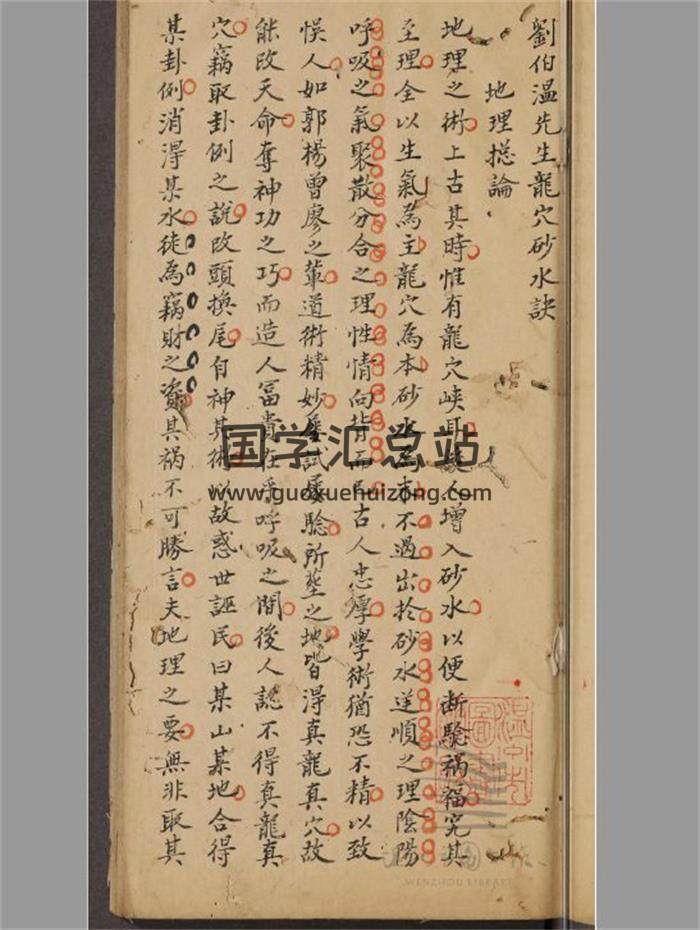 劉伯温先生龍穴砂水訣
地理揔論
地理之術上古其時惟有龍穴峽耳後人增入砂水以便斷驗禍福究其
至理全以生氣為主龍穴為本砂水為末不過出扵砂水逆順之理陰陽
呼吸之氣聚散分合之理性情向背而已古人忠厚學術猶恐不精以致
悞人如郭楊曾廖之軰道術精妙屡試屡驗所塟之地皆淂真龍真穴故
能改天命奪神功之巧而造人冨貴在乎呼吸之間後人認不得真龍真
穴竊取卦例之說改頭換尾自神其術以故惑世誣民曰某山某地合得
某卦例消淂某水徒為竊財之資其禍不可勝言夫地理之要無非取其
国学汇总站
www.guoxuehuizong.com
WENZHOU LIBRARY